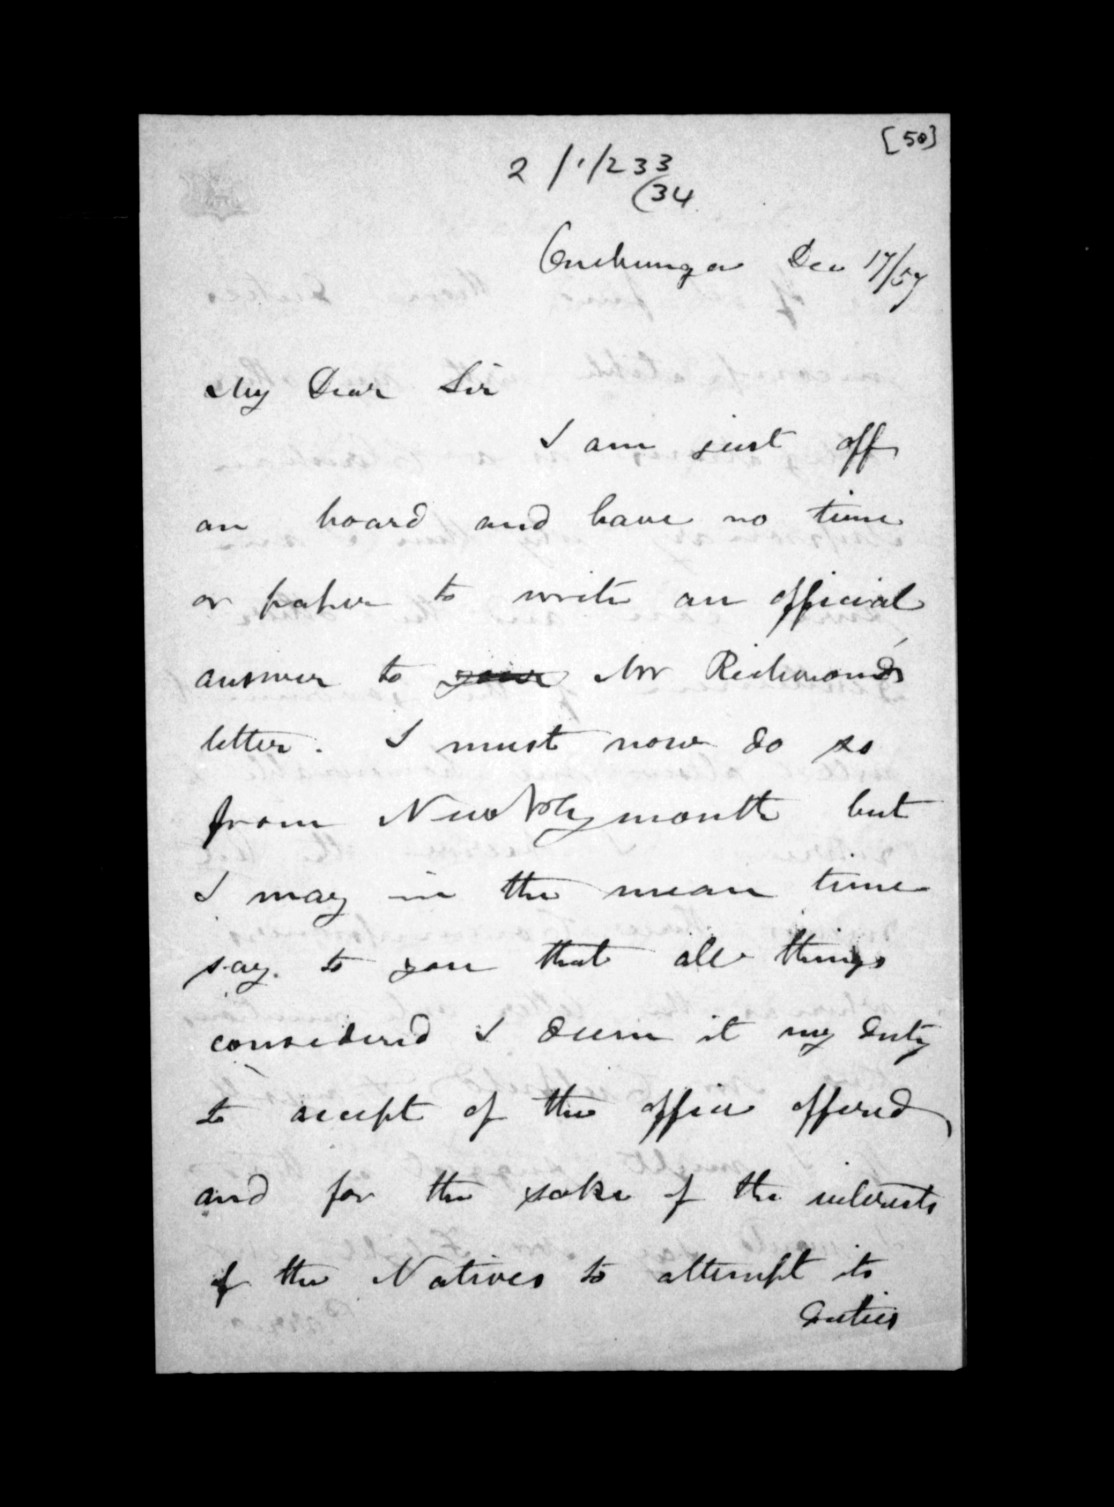 [50]
2/1/233
(34
Onehunga Dec 17/57
My Dear Sir
I am just off
on board and have no time
or paper to write an official
answer to your Mr Richmond's
letter. I must now do so
from New Plymouth but
I may in the mean time
say to you that all things
considered I deem it my duty
to accept of the office offered
and for the sake of the interests
of the Natives to attempt its
duties